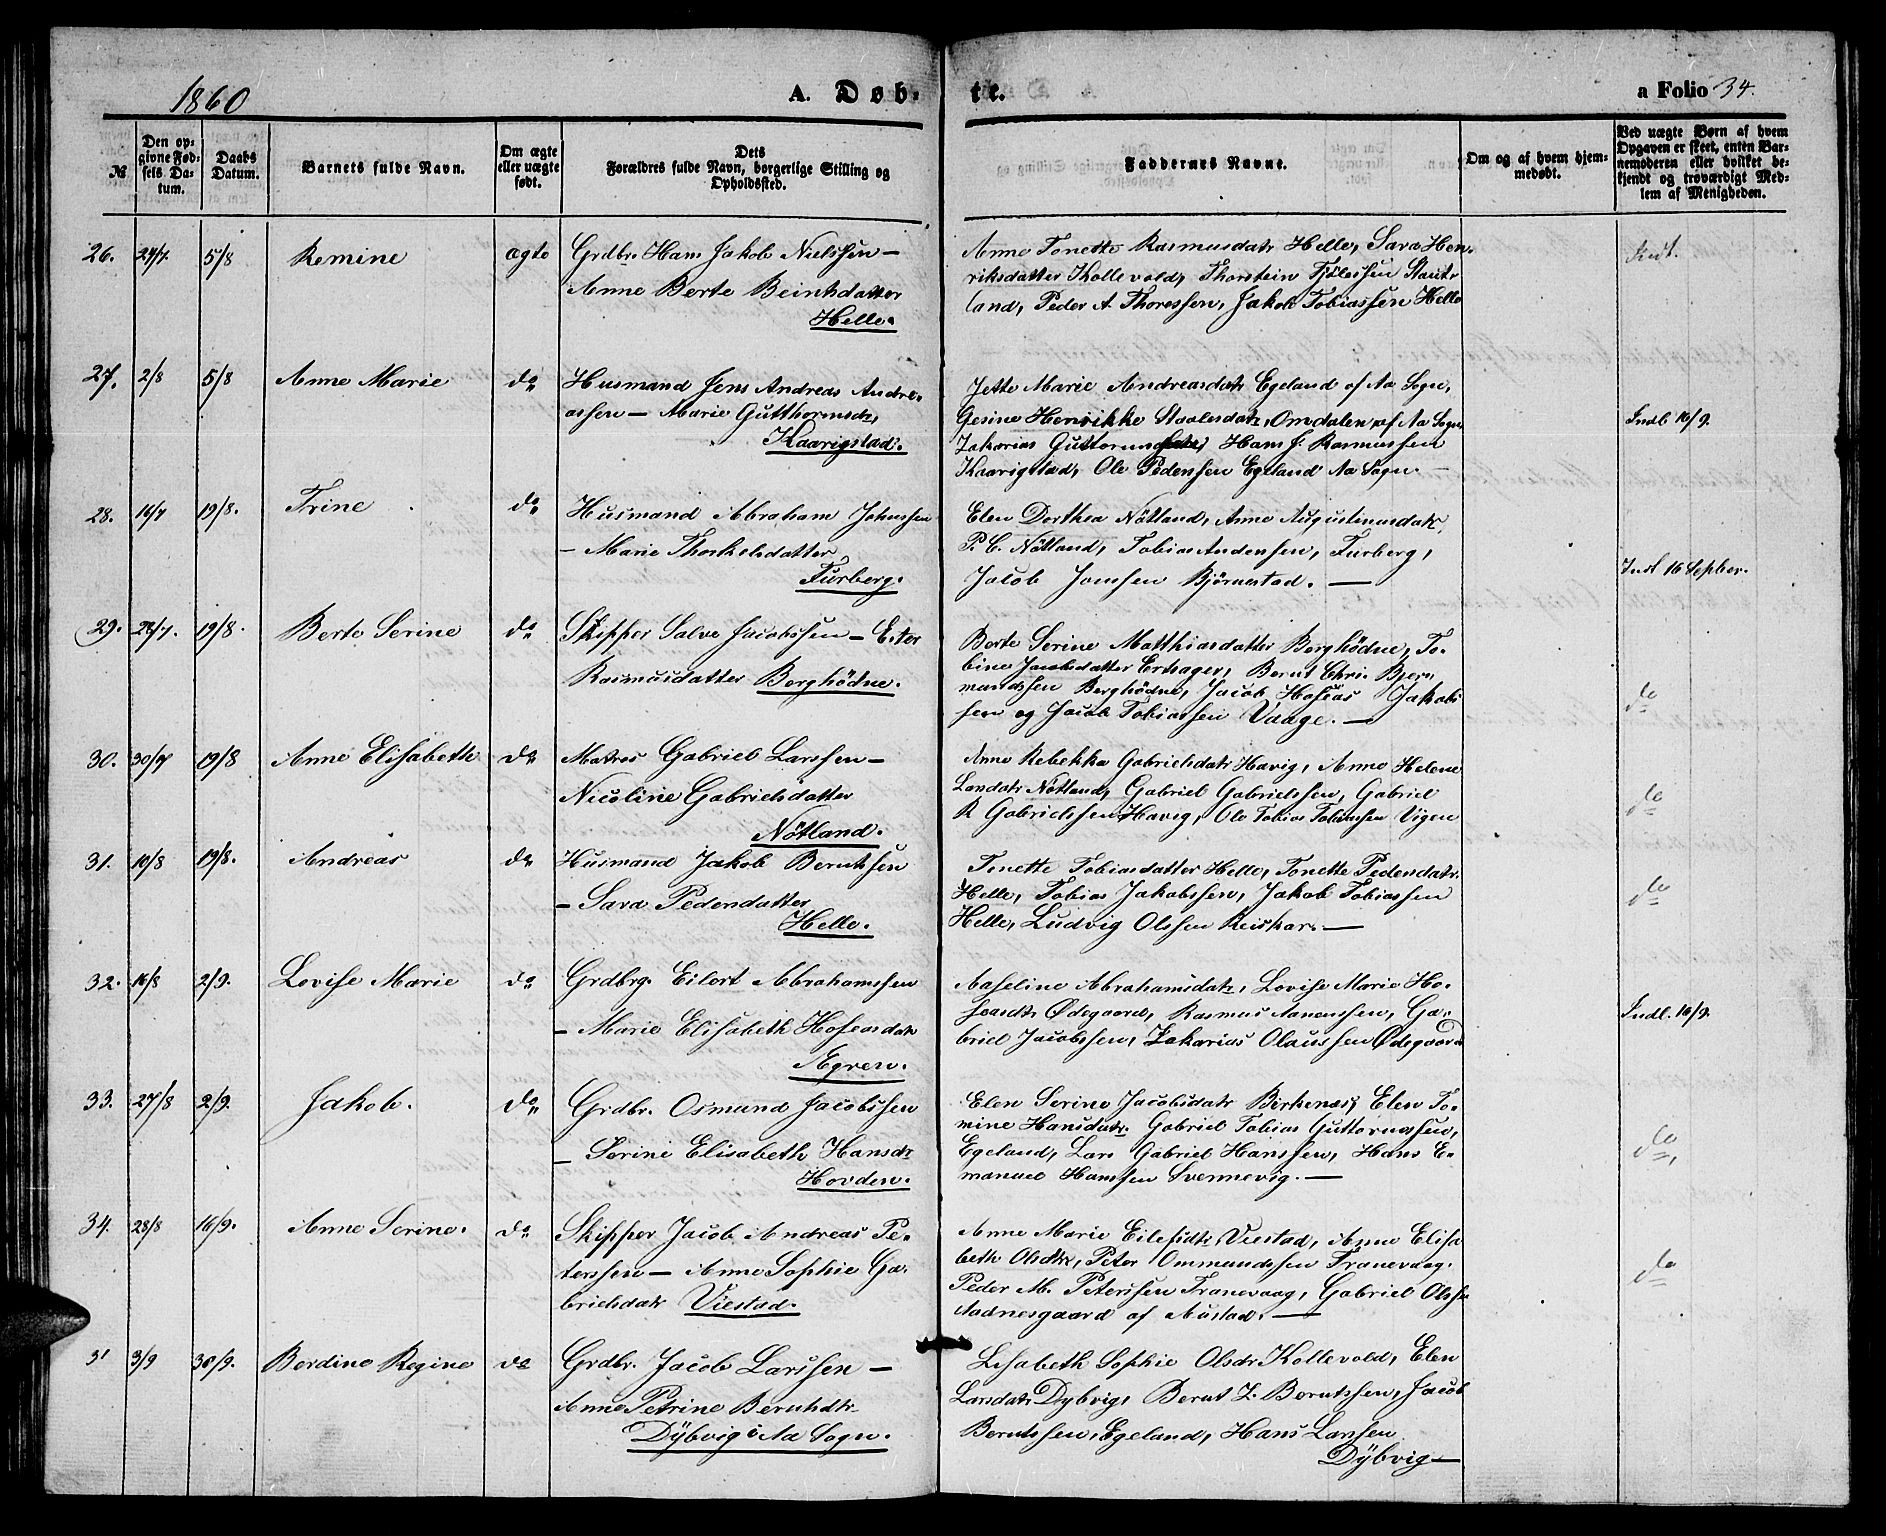 1860
A. Døb-
te.
a Folio 34.
№
Den op-
givne Fød-
sels. Da-
tum.
Daabs
Datum.
Barnets fulde Navn.
Om ægte
eller uægte
født.
Dets
Forældres fulde Navn, borgerlige Stilling og
Opholdssted.
Faddernes Navne.
Om og af hvem hjem-
medøbt.
Ved uægte Børn af hvem
Opgaven er skeet, enten Bar-
nemoderen eller hvilket be-
kjendt og troværdigt Med-
lem af Menigheden.
26. 24/7. 5/8 Remine ægte Grdbr. Hans Jakob Nielssen —
Anne Berte Beintsdatter
Helle.
Anne Tonette Rasmusdatr Helle, Sara Hen-
riksdatter Kollevold, Thorstein
land, Peder A Thoressen, Jakob Tobiassen Helle
Indt.
27. 2/8 5/8 Anne Marie do Husmand Jens Andreas Andre-
assen — Marie Gutthormsdr,
Kaarigstad.
Jette Marie Andreasdatr Egeland af Aa Sogn,
Gesine Henrikke Staalesdatr, Omdalen af Aa Sogn
Zakarias Hans J. Rasmussen
Kaarigstad, Ole Pedersen Egeland Aa Sogn. —
Indb 16/9.
28. 16/7 19/8. Trine do Husmand Abraham Johnssen
— Marie Thorkelsdatter
Furberg.
Elen Dorthea Nötland, Anne Augustinusdatr
P. C. Nötland, Tobias Andersen, Furberg,
Jacob Jonssen Bjørnestad. —
Indt 16 Septber.
29. 28/7. 19/8. Berte Serine do Skipper Salve Jacobssen — Ester
Rasmusdatter Berghödne.
Berte Serine Matthiasdatter Berghödne, To-
bine Jacobsdatter Bernt Chr. Bjer-
mandssen Berghödne, Jacob Hoseas Jakobs
sen og Jacob Tobiassen Vaage. —
do
30. 30/7 19/8 Anne Elisabeth do Matros Gabriel Larssen —
Nicoline Gabrielsdatter
Nötland.
Anne Rebekka Gabrielsdatr Havig, Anne Helene
Larsdatr Nötland, Gabriel Gabrielssen, Gabriel
R Gabrielssen Havig, Ole Tobias Tobiassen Vigen
do
31. 10/8 19/8. Andreas do Husmand Jakob Berntssen
— Sara Pedersdatter
Helle.
Tonette Tobiasdatter Helle, Tonette Pedersdatr.
Helle, Tobias Jakobssen, Jakob Tobiassen
Helle, Ludvig Olssen Reiskar. —
do
32. 16/8 2/9. Lovise Marie do Grdbrg. Eilert Abrahamssen
— Marie Elisabeth Hoseasdatr
Ægren.
Aaseline Abrahamsdatr, Lovise Marie Ho-
seasdtr Ødegaard, Rasmus Aanenssen, Ga-
briel Jacobssen, Zakarias Olaussen Ødegaard
Indl. 16/9.
33. 27/8 2/9. Jakob. do Grdbr. Osmund Jacobssen
— Serine Elisabeth Hansdr
Hovden.
Elen Serine Jacobsdatr Birkenæs, Elen To-
mine Hansdatr. Gabriel Tobias Guttormssen,
Egeland, Lars Gabriel Hanssen, Hans E-
manuel Hanssen Svennevig. —
do,
34. 28/8 16/9. Anne Serine. do Skipper Jacob Andreas Pe-
terssen — Anne Sophie Ga-
brielsdatr Viestad.
Anne Marie Eilefsdtr, Viestad, Anne Elisa
beth Olsdtr, Peter Ommundssen Tranevaag,
Peder M. Peterssen Tranevaag, Gabriel Olss
Aadnesgaard af Austad. —
do
3' 3/9 30/9. Berdine Regine do Grdbr. Jacob Larssen —
Anne Petrine Berntsdtr
Dÿbvig i Aa Sogn.
Lisabeth Sophie Olsdr Kollevold, Elen
Larsdatr Dybvig, Bernt Z. Berntssen, Jacob
Berntssen, Egeland, Hans Larssen
Dÿbvig —